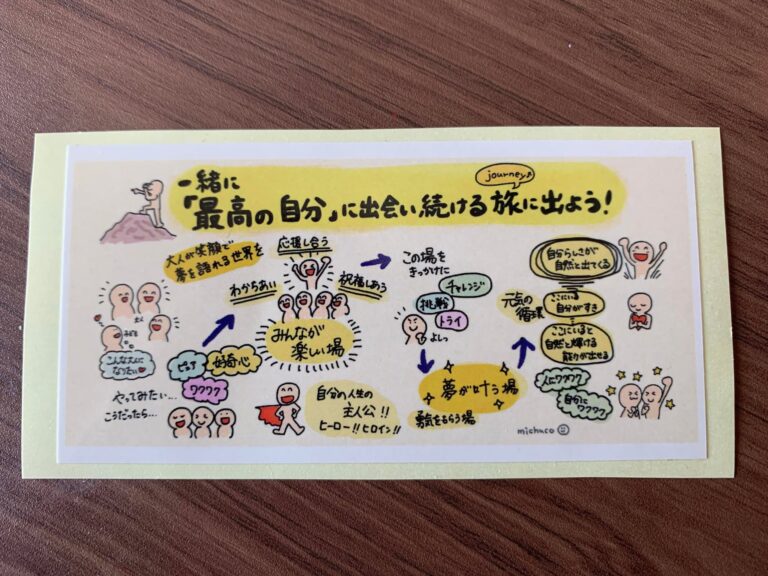 一緒に
journey♪
「最高の自分」に出会い続ける旅に出よう!
大人が笑顔で
夢を語れる世界を
大人
子ども
こんな大人に
なりたい
ピュア
好奇心
ワクワク
やってみたい…
こうだったら…
応援し合う
わかちあい
祝福しあう
みんなが
楽しい場
自分の人生の
主人公!!
ヒーロー!!ヒロイン!!
この場を
きっかけに
チャレンジ
挑戦
トライ
よしっ
夢が叶う場
勇気をもらう場
元気の
循環
自分らしさが
自然と出てくる
ここにいる
自分がすき
ここにいると
自然と輝ける
能力が出せる
人にワクワク
自分に
ワクワク
michaco